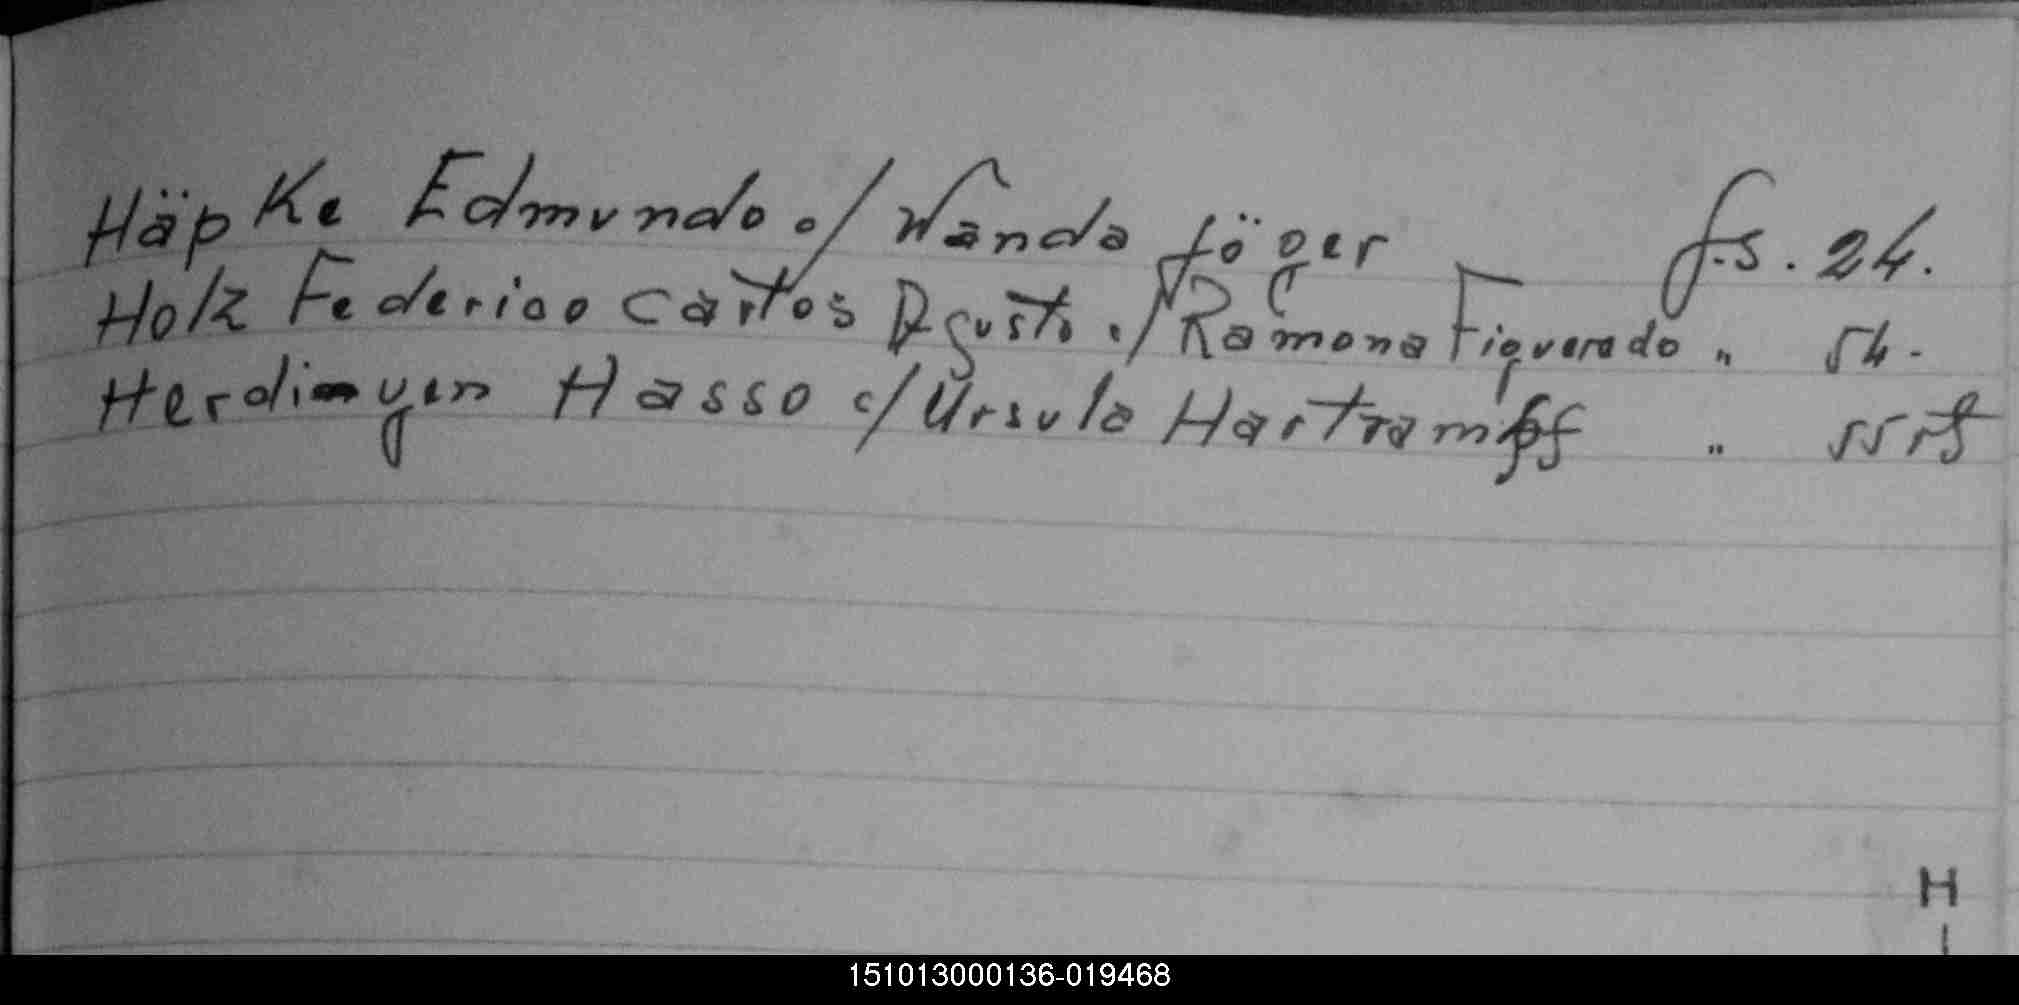 Häpke Edmundo c/ Wanda Jöger fs. 24.
Holz Federico Carlos Agusto c/ Ramona Figueredo " 54.
Herdingen Hasso c/ Ursula Hartrampf " 55
H
151013000136-019468